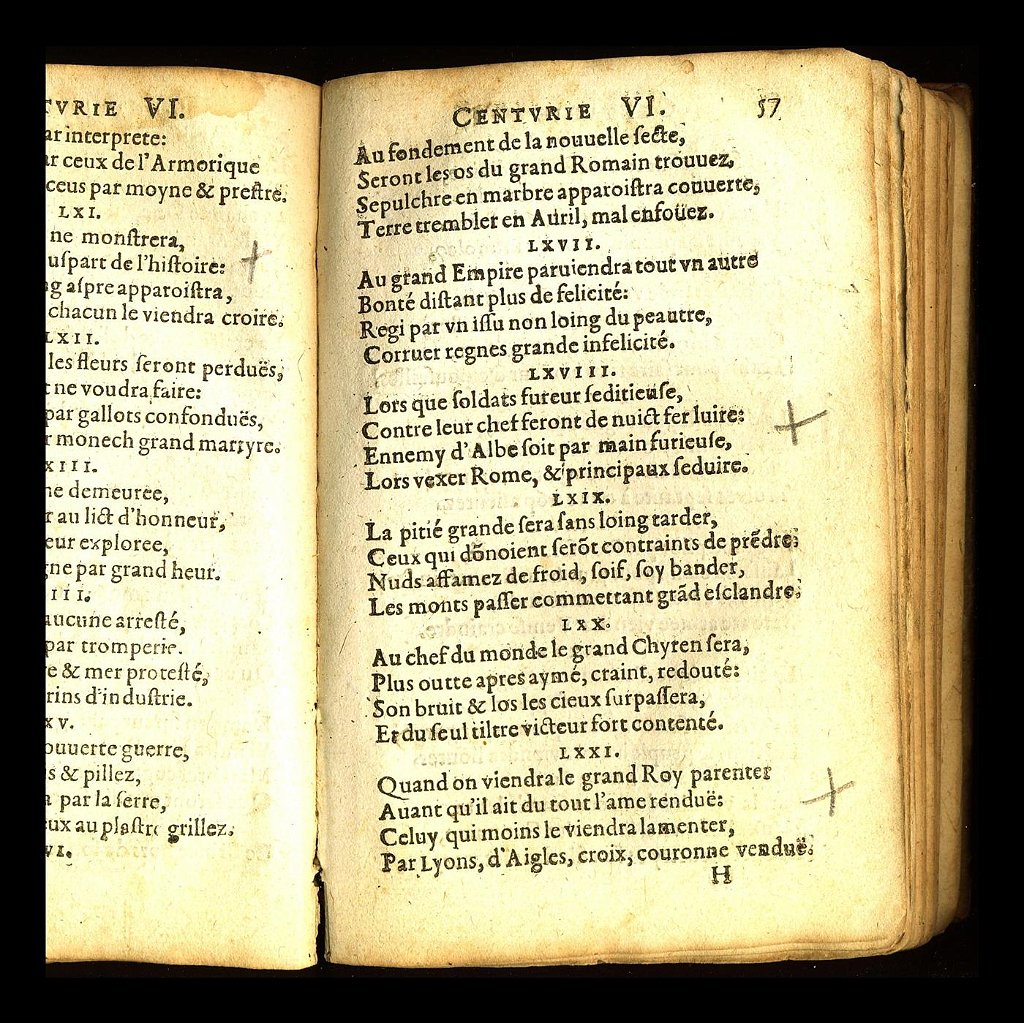 TVRIE VI.
ar interprete:
ar ceux de l'Armorique
ceus par moyne & prestre.
LXI.
ne monstrera,
uspart de l'histoire:
g aspre apparoistra,
chacun le viendra croire.
LXII.
les fleurs seront perduës,
ne voudra faire:
par gallots confonduës,
r monech grand martyre.
XIII.
ne demeuree,
r au lict d'honneur,
eur exploree,
gne par grand heur.
III.
aucune arresté,
par tromperie.
e & mer protesté,
rins d'industrie.
XV.
ouuerte guerre,
s & pillez,
a par la serre,
ux au plastre grillez.
VI.
CENTVRIE VI. 57
Au fondement de la nouuelle secte,
Seront les os du grand Romain trouuez,
Sepulchre en marbre apparoistra couuerte,
Terre trembler en Auril, mal enfoüez.
LXVII.
Au grand Empire paruiendra tout vn autre
Bonté distant plus de felicité:
Regi par vn issu non loing du peautre,
Corruer regnes grande infelicité.
LXVIII.
Lors que soldats fureur seditieuse,
Contre leur chef feront de nuict fer luire:
Ennemy d'Albe soit par main furieuse,
Lors vexer Rome, & principaux seduire.
LXIX.
La pitié grande sera sans loing tarder,
Ceux qui dõnoient serõt contraints de prẽdre;
Nuds affamez de froid, soif, soy bander,
Les monts passer commettant grãd esclandre.
LXX.
Au chef du monde le grand Chyren sera,
Plus outte apres aymé, craint, redouté:
Son bruit & los les cieux surpassera,
Et du seul tiltre victeur fort contenté.
LXXI.
Quand on viendra le grand Roy parenter
Auant qu'il ait du tout l'ame renduë:
Celuy qui moins le viendra lamenter,
Par Lyons, d'Aigles, croix, couronne venduë.
H